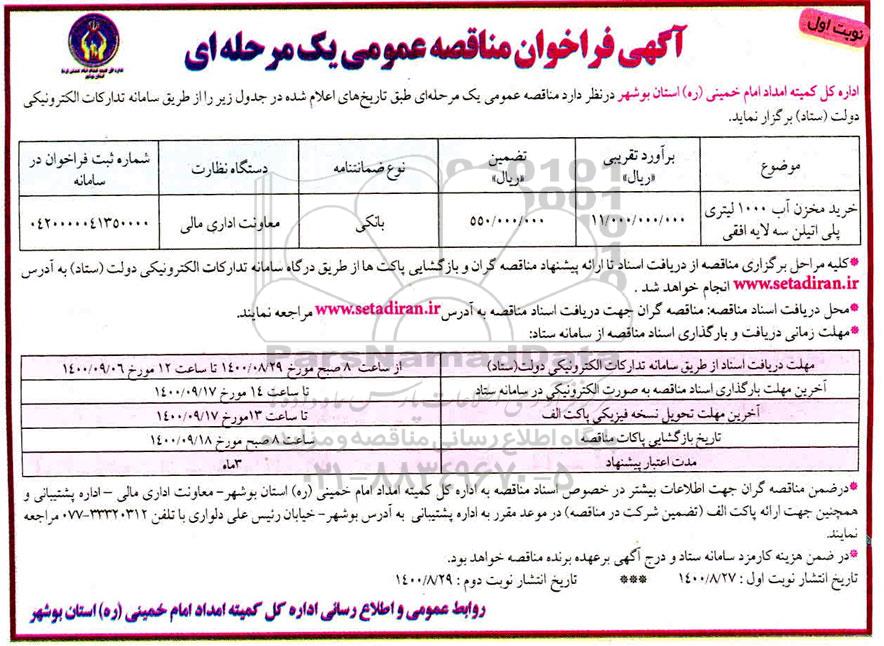 نوبت اول
آگهی فراخوان مناقصه عمومی یک مرحله ای
اداره کل کمیته امداد امام خمینی (ره) استان بوشهر
اداره کل کمیته امداد امام خمینی (ره) استان بوشهر درنظر دارد مناقصه عمومی یک مرحله‌ای طبق تاریخ‌های اعلام شده در جدول زیر را از طریق سامانه تدارکات الکترونیکی
دولت (ستاد) برگزار نماید.
موضوع | برآورد تقریبی «ریال» | تضمین «ریال» | نوع ضمانتنامه | دستگاه نظارت | شماره ثبت فراخوان در سامانه
خرید مخزن آب ۱۰۰۰ لیتری پلی اتیلن سه لایه افقی | ۱۱/۰۰۰/۰۰۰/۰۰۰ | ۵۵۰/۰۰۰/۰۰۰ | بانکی | معاونت اداری مالی | ۰۴۲۰۰۰۰۰۴۱۳۵۰۰۰۰
*کلیه مراحل برگزاری مناقصه از دریافت اسناد تا ارائه پیشنهاد مناقصه گران و بازگشایی پاکت ها از طریق درگاه سامانه تدارکات الکترونیکی دولت (ستاد) به آدرس
www.setadiran.ir انجام خواهد شد .
*محل دریافت اسناد مناقصه: مناقصه گران جهت دریافت اسناد مناقصه به آدرس www.setadiran.ir مراجعه نمایند.
*مهلت زمانی دریافت و بارگذاری اسناد مناقصه از سامانه ستاد:
مهلت دریافت اسناد از طریق سامانه تدارکات الکترونیکی دولت(ستاد) | از ساعت ۸ صبح مورخ ۱۴۰۰/۰۸/۲۹ تا ساعت ۱۲ مورخ ۱۴۰۰/۰۹/۰۶
آخرین مهلت بارگذاری اسناد مناقصه به صورت الکترونیکی در سامانه ستاد | تا ساعت ۱۴ مورخ ۱۴۰۰/۰۹/۱۷
آخرین مهلت تحویل نسخه فیزیکی پاکت الف | تا ساعت ۱۳مورخ ۱۴۰۰/۰۹/۱۷
تاریخ بازگشایی پاکات مناقصه | ساعت ۸ صبح مورخ ۱۴۰۰/۰۹/۱۸
مدت اعتبار پیشنهاد | ۳ماه
ParsNamadData
پایگاه اطلاع رسانی مناقصه و مزایده
۰۲۱-۸۸۳۴۹۶۷۰-۵
*درضمن مناقصه گران جهت اطلاعات بیشتر در خصوص اسناد مناقصه به اداره کل کمیته امداد امام خمینی (ره) استان بوشهر- معاونت اداری مالی - اداره پشتیبانی و
همچنین جهت ارائه پاکت الف (تضمین شرکت در مناقصه) در موعد مقرر به اداره پشتیبانی به آدرس بوشهر- خیابان رئیس علی دلواری با تلفن ۳۳۳۲۰۳۱۲-۰۷۷ مراجعه
نمایند.
*در ضمن هزینه کارمزد سامانه ستاد و درج آگهی برعهده برنده مناقصه خواهد بود.
تاریخ انتشار نوبت اول : ۱۴۰۰/۸/۲۷ *** تاریخ انتشار نوبت دوم : ۱۴۰۰/۸/۲۹
روابط عمومی و اطلاع رسانی اداره کل کمیته امداد امام خمینی (ره) استان بوشهر